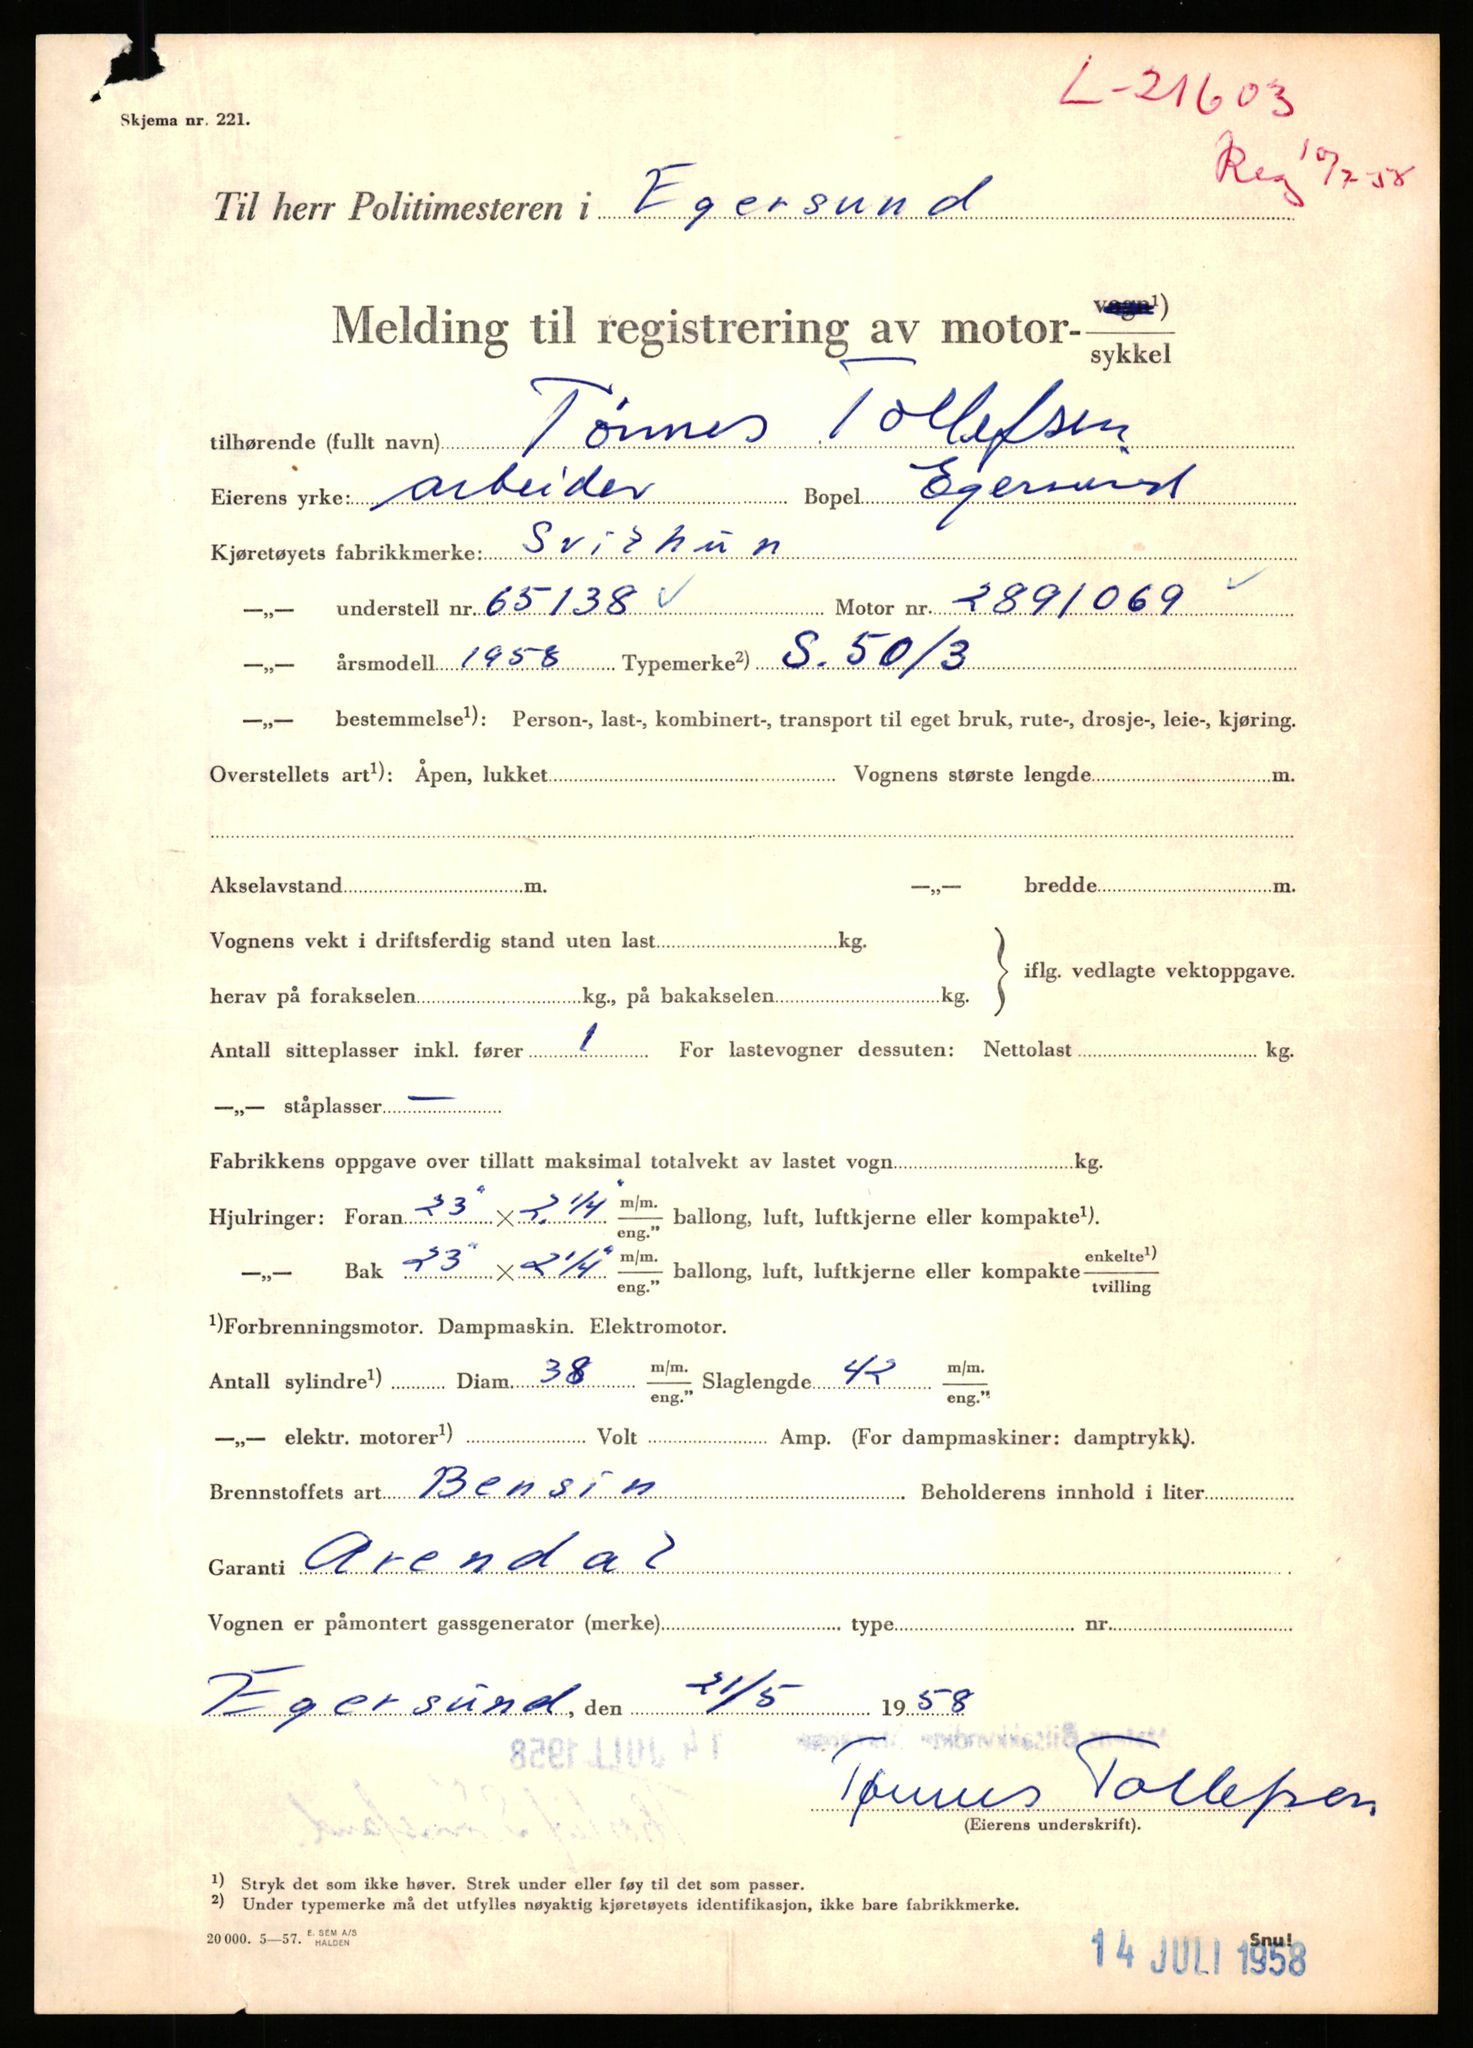 L-21603
Skjema nr. 221.
Reg 10/7-58
Til herr Politimesteren i Egersund
Melding til registrering av motor- vogn¹) / sykkel
tilhørende (fullt navn) Tønnes Tollefsen
Eierens yrke: arbeider Bopel Egersund
Kjøretøyets fabrikkmerke: Svithun
—„— understell nr. 65138 ✓ Motor nr. 2891069 ✓
—„— årsmodell 1958 Typemerke²) S. 50/3
—„— bestemmelse¹): Person-, last-, kombinert-, transport til eget bruk, rute-, drosje-, leie-, kjøring.
Overstellets art¹): Åpen, lukket Vognens største lengde m.
Akselavstand m. —„— bredde m.
Vognens vekt i driftsferdig stand uten last kg.
iflg. vedlagte vektoppgave.
herav på forakselen kg., på bakakselen kg.
Antall sitteplasser inkl. fører 1 For lastevogner dessuten: Nettolast kg.
—„— ståplasser —
Fabrikkens oppgave over tillatt maksimal totalvekt av lastet vogn kg.
Hjulringer: Foran 23" × 2 1/4" m/m. / eng." ballong, luft, luftkjerne eller kompakte¹).
—„— Bak 23" × 2 1/4" m/m. / eng." ballong, luft, luftkjerne eller kompakte enkelte¹) / tvilling
¹)Forbrenningsmotor. Dampmaskin. Elektromotor.
Antall sylindre¹) Diam. 38 m/m. / eng." Slaglengde 42 m/m. / eng."
—„— elektr. motorer¹) Volt Amp. (For dampmaskiner: damptrykk).
Brennstoffets art Bensin Beholderens innhold i liter
Garanti Arendal
Vognen er påmontert gassgenerator (merke) type nr.
Egersund, den 21/5 1958
14 JULI 1958
Tønnes Tollefsen
(Eierens underskrift).
¹) Stryk det som ikke høver. Strek under eller føy til det som passer.
²) Under typemerke må det utfylles nøyaktig kjøretøyets identifikasjon, ikke bare fabrikkmerke.
20 000. 5—57. E. SEM A/S HALDEN
Snu!
14 JULI 1958